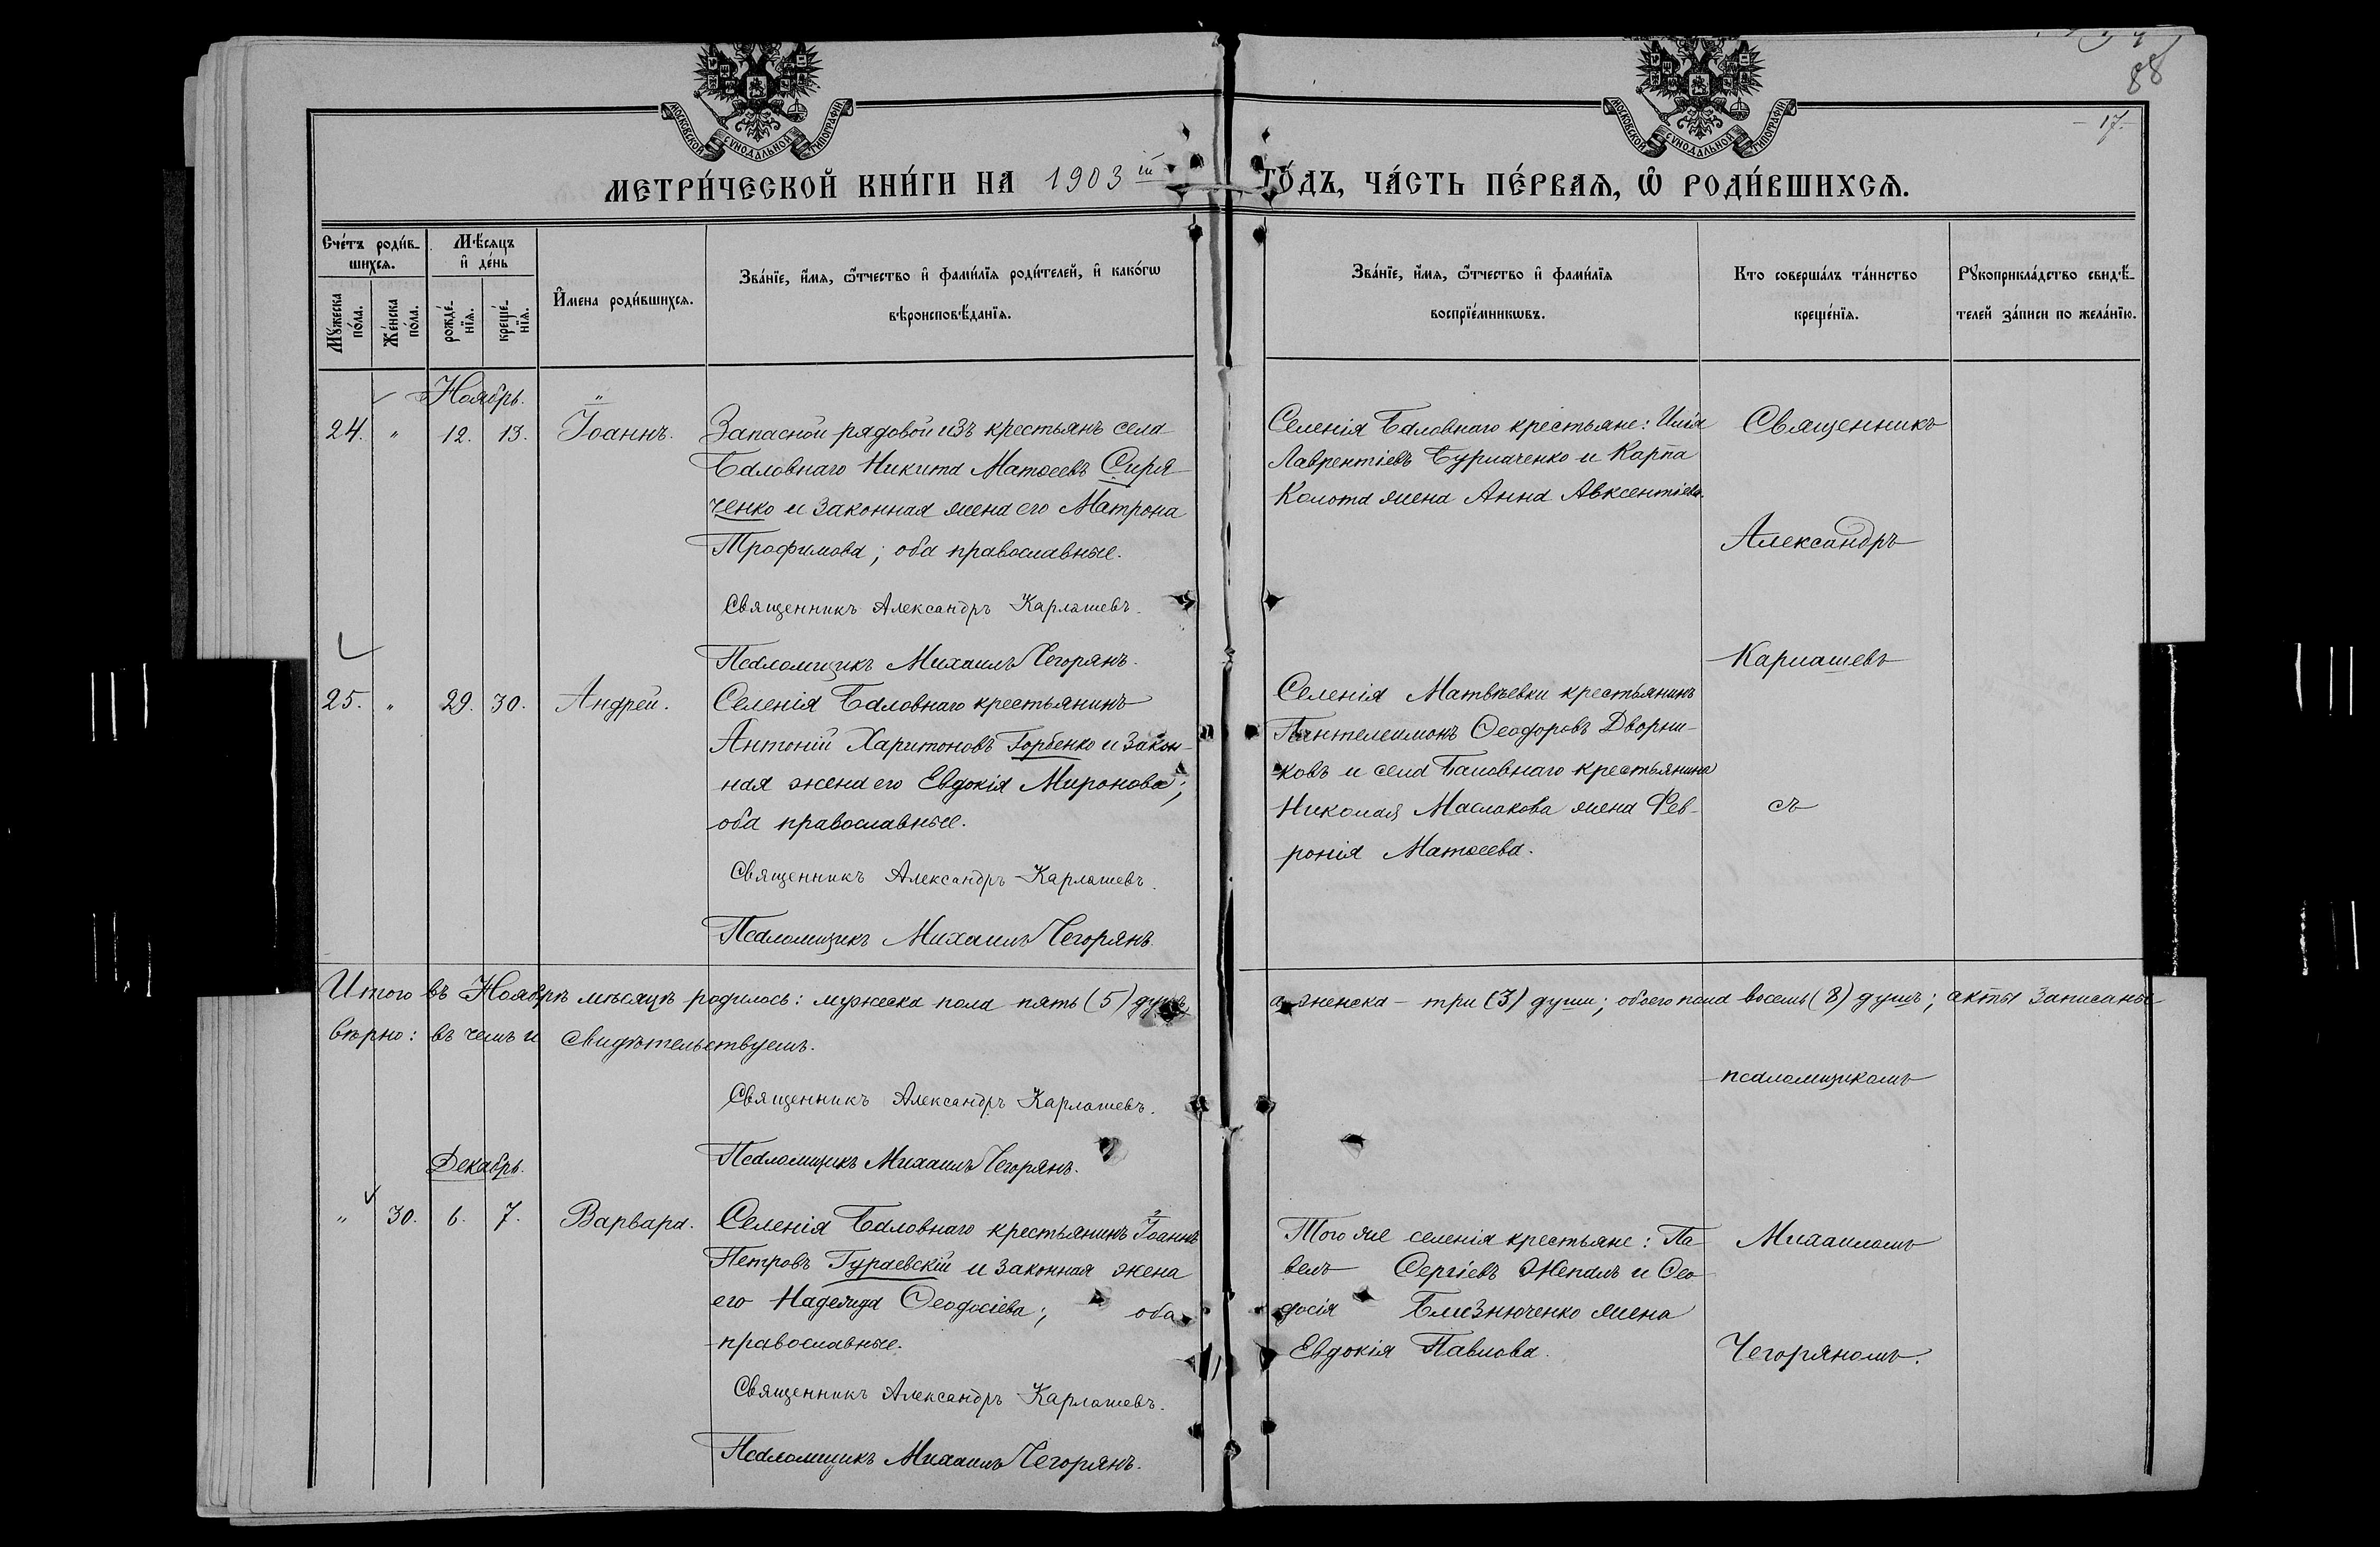 88
МОСКОВСКОЙ СѴНОДАЛЬНОЙ ТИПОГРАФІИ
МОСКОВСКОЙ СѴНОДАЛЬНОЙ ТИПОГРАФІИ
- 17. -
МЕТРИ́ЧЕСКОЙ КНИ́ГИ НА 1903 ій ГО́ДЪ, ЧА́СТЬ ПЕ́РВАЯ, Ѡ РОДИ́ВШИХСЯ.
Сче́тъ роди́в-
шихся.
Мѣ́сяцъ
и де́нь
Му́жеска
по́ла.
Же́нска
по́ла.
рожде́-
нїя.
креще́-
нїя.
И҆́мена роди́вшихся.
Зва́нїе, и҆́мя, ѻ҆́тчество и҆ фами́лїя роди́телей, и҆ како́гѡ
вѣроисповѣ́данїя.
Зва́нїе, и҆́мя, ѻ҆́тчество и҆ фами́лїя
воспрїе́мникѡвъ.
Кто соверша́лъ та́инство
креще́нїя.
Рꙋкоприкла́дство свидѣ́-
телей за́писи по жела́нїю.
Ноябрь.
24. " 12. 13. Іоаннъ.
Запасной рядовой изъ крестьянъ села
Баловнаго Никита Матѳеевъ Сиря-
ченко и законная жена его Матрона
Трофимова; оба православные.
Священникъ Александръ Карлашевъ.
Псаломщикъ Михаилъ Чегорянъ.
Селенія Баловнаго крестьяне: Илія
Лаврентіевъ Бурлаченко и Карпа
Колота жена Анна Авксентіева.
Священникъ
Александръ
Карлашевъ
25. " 29. 30. Андрей.
Селенія Баловнаго крестьянинъ
Антоній Харитоновъ Горбенко и закон-
ная жена его Евдокія Миронова;
оба православные.
Священникъ Александръ Карлашевъ.
Псаломщикъ Михаилъ Чегорянъ.
Селенія Матвѣевки крестьянинъ
Пантелеимонъ Ѳеодоровъ Дворни-
ковъ и села Баловнаго крестьянина
Николая Маслакова жена Фев-
ронія Матѳеева.
съ
Итого въ Ноябрѣ мѣсяцѣ родилось: мужеска пола пять (5) душъ, а женска - три (3) души; обоего пола восемь (8) душъ; акты записаны
вѣрно: въ чемъ и свидѣтельствуемъ.
Священникъ Александръ Карлашевъ.
Псаломщикъ Михаилъ Чегорянъ.
псаломщикомъ
Декабрь.
" 30. 6. 7. Варвара.
Селенія Баловнаго крестьянинъ Іоаннъ
Петровъ Гураевскій и законная жена
его Надежда Ѳеодосіева; оба
православные.
Священникъ Александръ Карлашевъ.
Псаломщикъ Михаилъ Чегорянъ.
Того же селенія крестьяне: Па-
велъ Сергіевъ Жепалъ и Ѳео-
досія Близнюченко жена
Евдокія Павлова.
Михаиломъ
Чегоряномъ.